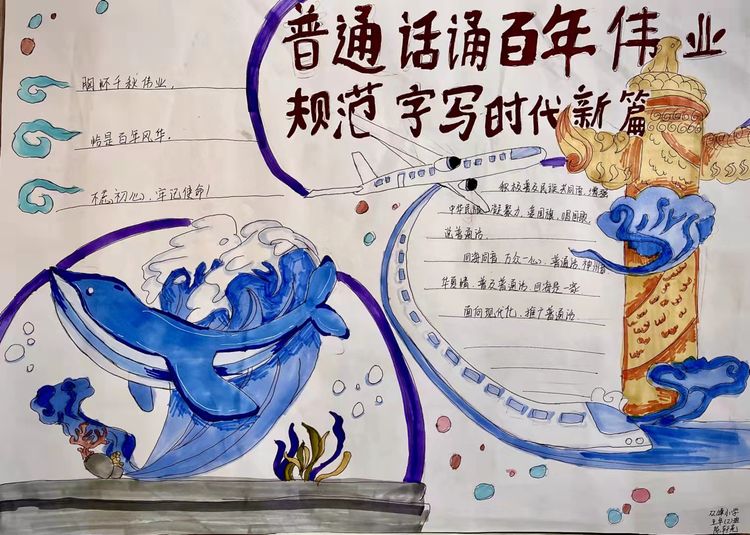 普通话诵百年伟业
规范字写时代新篇
胸怀千秋伟业，
恰是百年风华.
不忘初心，牢记使命！
积极普及民族共同语，增强
中华民族凝聚力，爱国旗，唱国歌
说普通话.
四海同音，万众一心，普通话，神州音
华夏情，普及普通话，四海是一家
面向现代化，推广普通话
小学